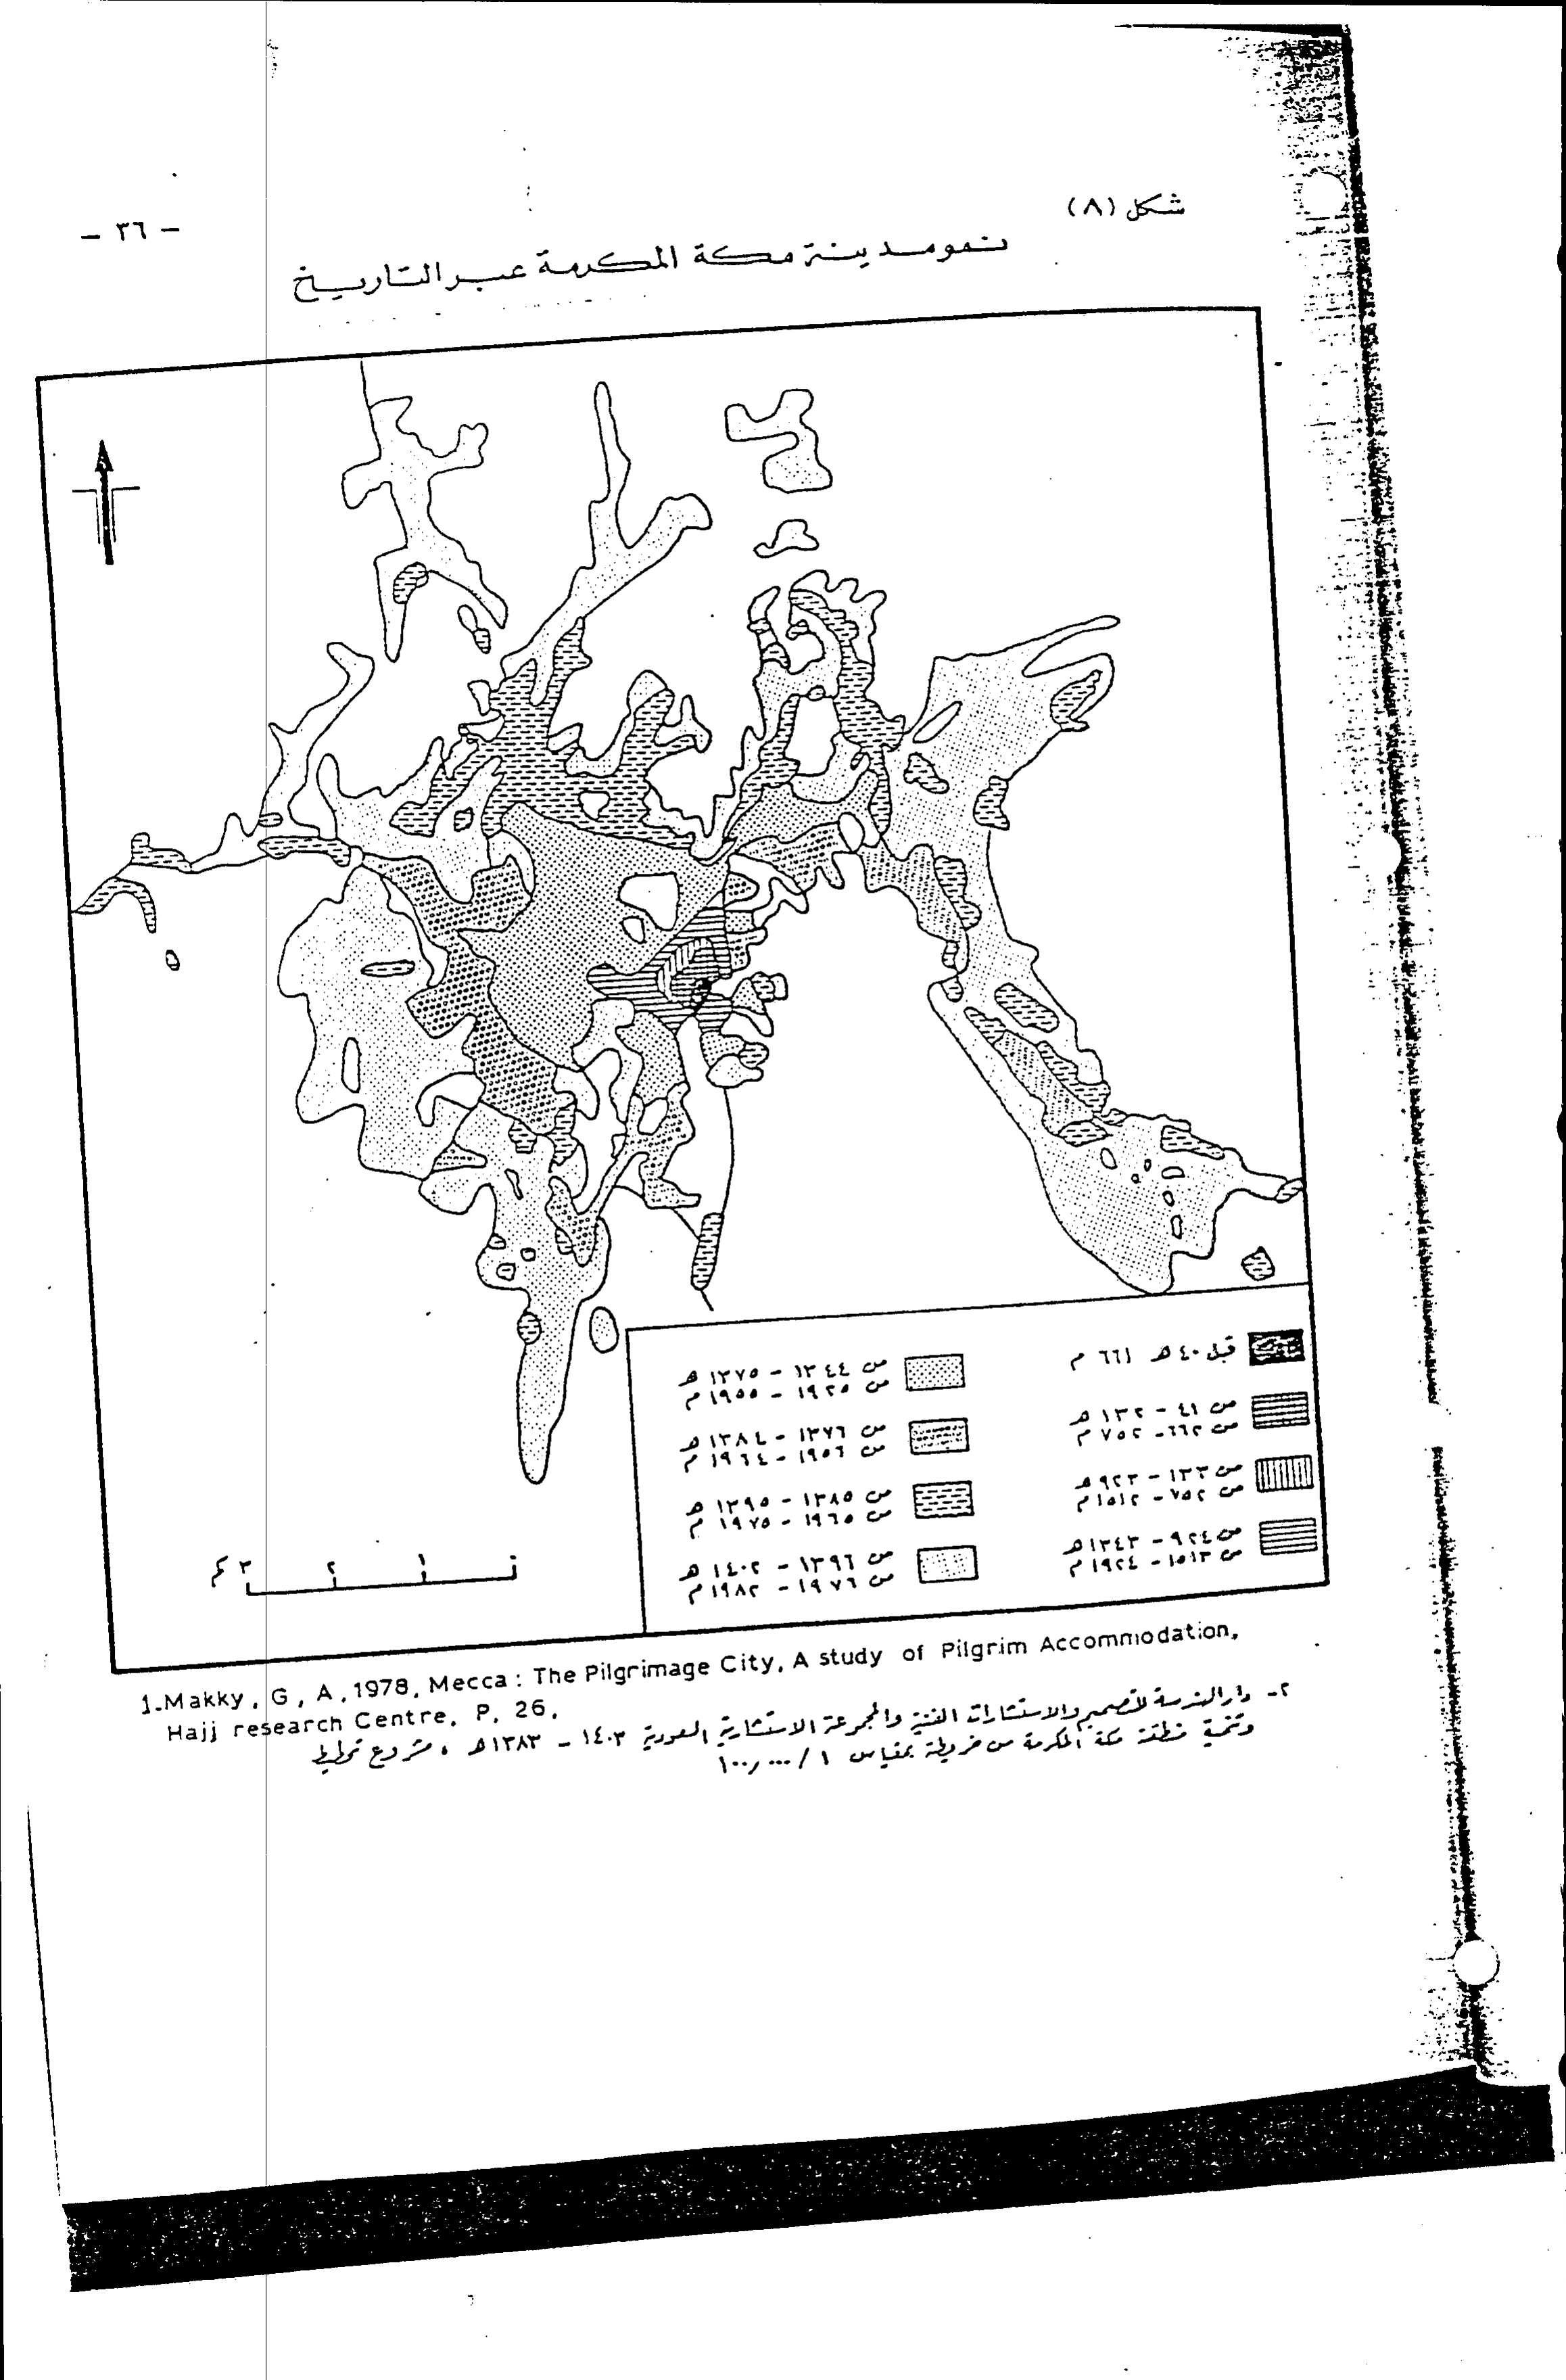 شكل (٨)
- ٣٦ -
نمو مدينة مكة المكرمة عبر التاريخ
قبل ٤٠ هـ ٦٦١ م
من ٤١ - ١٣٢ هـ
من ٦٦٢ - ٧٥٢ م
من ١٣٣ - ٩٢٣ هـ
من ٧٥٢ - ١٥١٢ م
من ٩٢٤ - ١٣٤٣ هـ
من ١٥١٣ - ١٩٢٤ م
من ١٣٤٤ - ١٣٧٥ هـ
من ١٩٢٥ - ١٩٥٥ م
من ١٣٧٦ - ١٣٨٤ هـ
من ١٩٥٦ - ١٩٦٤ م
من ١٣٨٥ - ١٣٩٥ هـ
من ١٩٦٥ - ١٩٧٥ م
من ١٣٩٦ - ١٤٠٢ هـ
من ١٩٧٦ - ١٩٨٢ م
٠ ١ ٢ ٣ كم
1-Makky, G, A, 1978, Mecca: The Pilgrimage City, A study of Pilgrim Accommodation,
Hajj research Centre, P, 26,
٢- دار الهندسة للتصميم والاستشارات الفنية والمجموعة الاستشارية السعودية ١٤٠٣ - ١٣٨٣ هـ ، مشروع تخطيط
وتنمية منطقة مكة المكرمة من خريطة بمقياس ١ / ١٠٠,٠٠٠